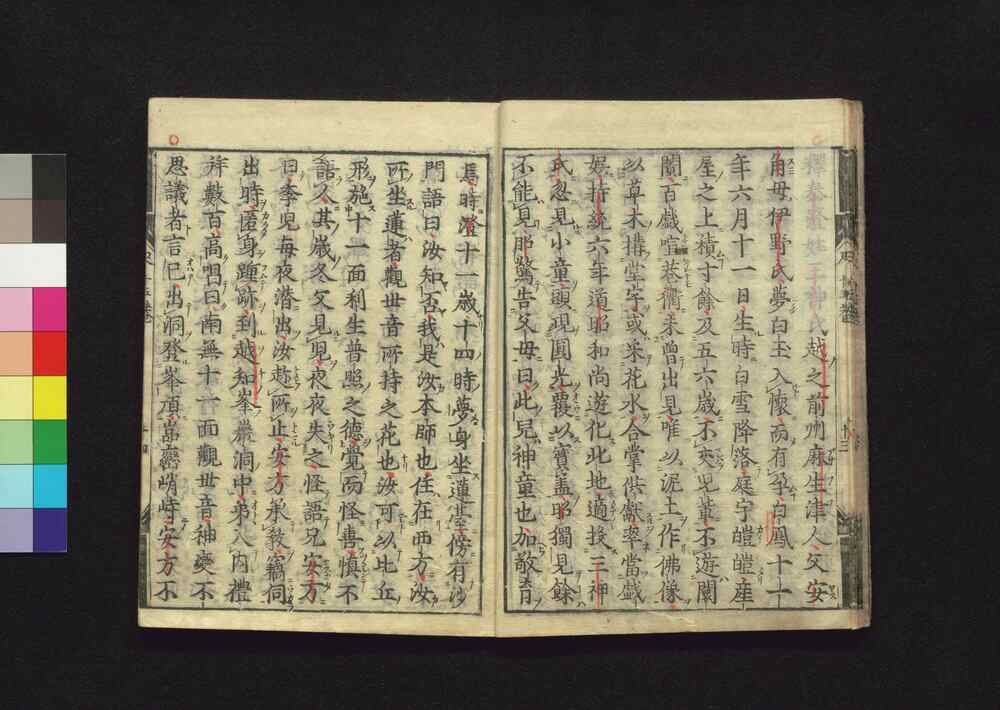 釋泰澄姓三神氏越之前州麻生津人父安
角母伊野氏夢白玉入懷而有孕白鳳十一
年六月十一日生時白雪降落庭宇皚皚産
屋之上積寸餘及五六歳不交兒輩不遊闤
闠百戯喧巷衢未曾出見唯以泥土作佛像
以草木搆堂宇或采花水合掌供獻率當戯
娯持統六年道昭和尚遊化此地適投三神
氏忽見小童頭現圓光覆以寳盖昭獨見餘
不能見昭驚告父母曰此兒神童也加敬育
焉時澄十一歳十四時夢身坐蓮臺傍有沙
門語曰汝知否我是汝本師也住在西方汝
所坐蓮者觀世音所持之花也汝可以比丘
形施十一面利生普照之德覺而怪喜愼不
語人其歳冬父見兒夜夜失之怪語兄安方
曰季兒毎夜潜出汝趂所止安方承敎竊伺
出時匿身踵跡到越知峯巖洞中弟入内禮
拜數百高唱曰南無十一面觀世音神變不
思議者言已出洞登峯頂嵓巒峭峙安方不